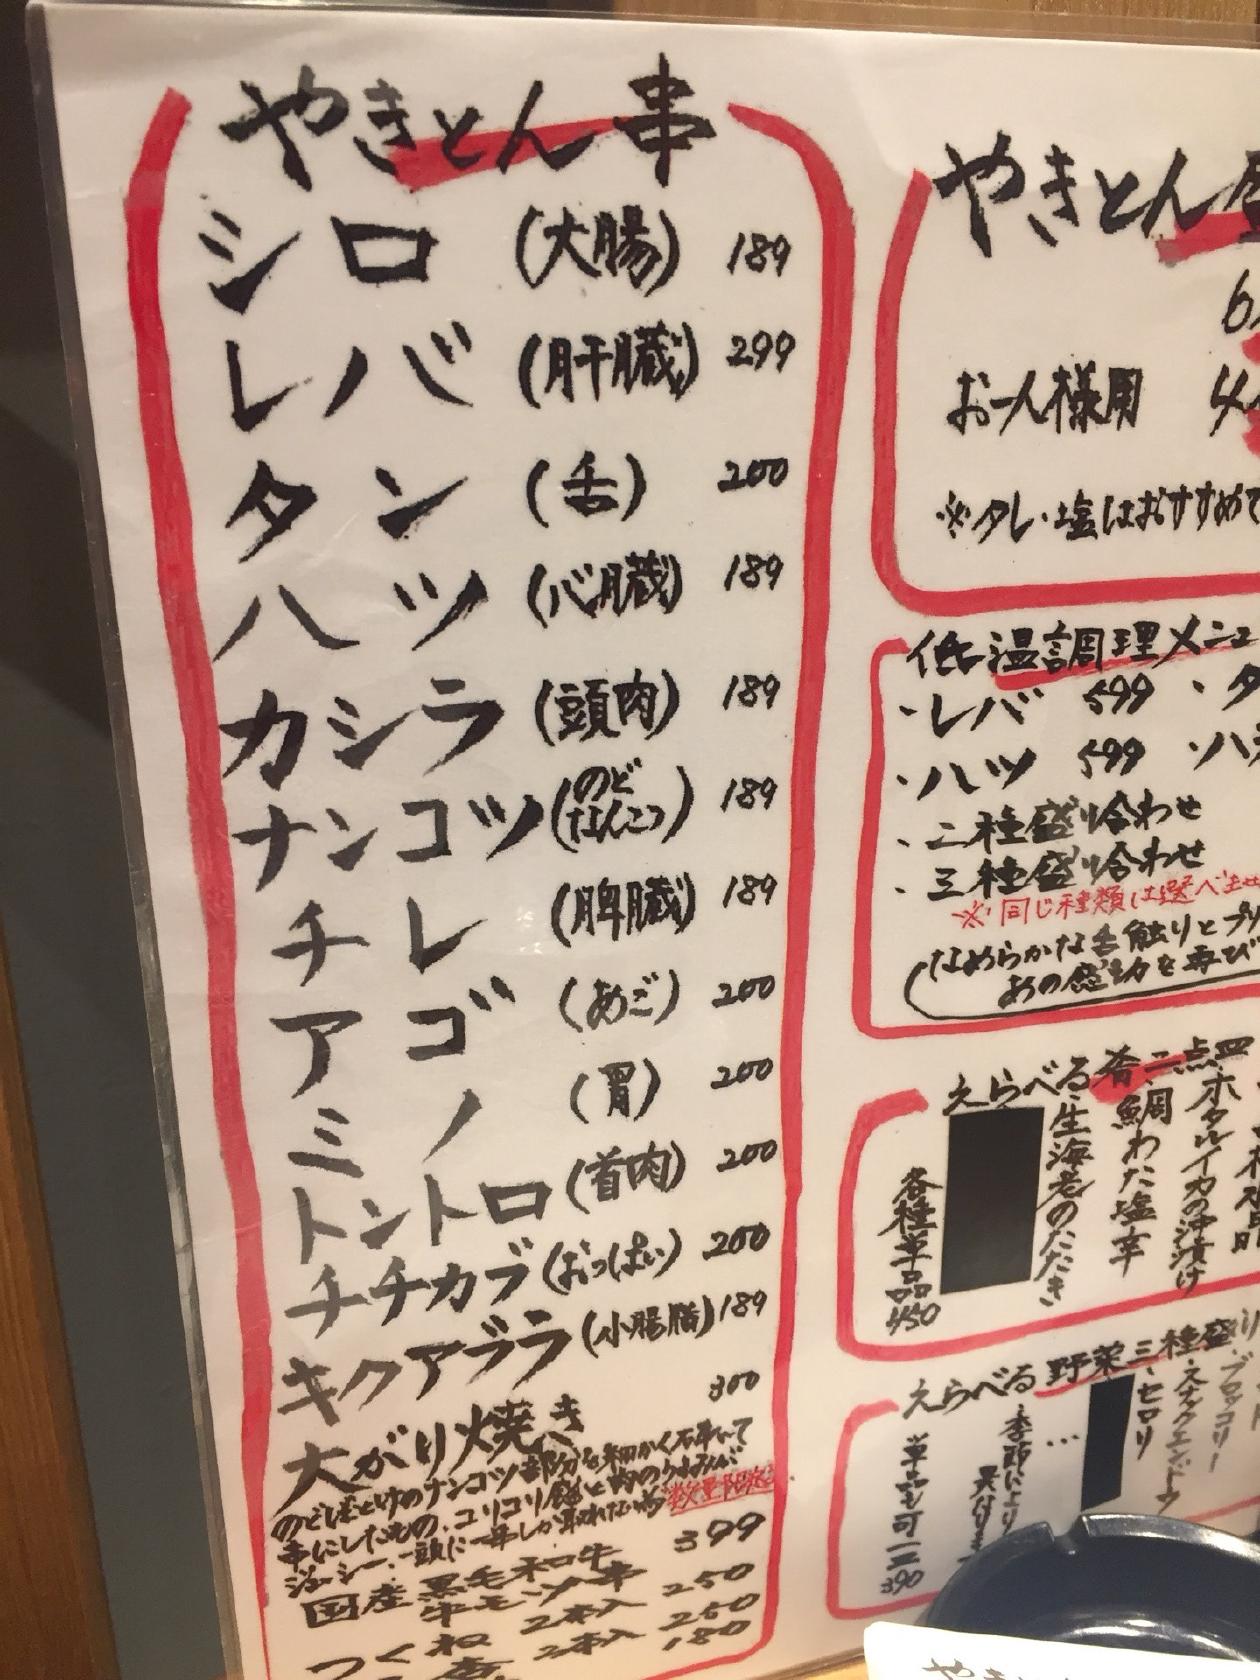 やきとん串
シロ (大腸) 189
レバ (肝臓) 299
タン (舌) 200
ハツ (心臓) 189
カシラ (頭肉) 189
ナンコツ (のどなんこつ) 189
チレ (脾臓) 189
アゴ (あご) 200
ミノ (胃) 200
トントロ (首肉) 200
チチカブ (おっぱい) 200
キクアブラ (小腸脂) 189
大がり焼き 300
のどぼとけのナンコツ部分を細かく石串いて
串にしたもの、コリコリ食感と肉のうまみが
ジューシー、一頭に一串しか取れない為 数量限定
国産黒毛和牛
牛モツ串 399
つくね 2本入 250
2本入 250
180
やきとん
お一人様用
※タレ・塩はおすすめで
低温調理メニュ
・レバ 599 ・タ
・ハツ 599 ・ハ
・二種盛り合わせ
・三種盛り合わせ
※同じ種類は選べませ
なめらかな舌触りとプリ
あの感動を再び
えらべる肴二点
ホタルイカの沖漬け
鯛わた塩辛
生海老のたたき
各種単品450
えらべる野菜三種盛り
ブロッコリー
・スナックエンドウ
・セロリ
季節により
異なります
単品も可一工390
やき